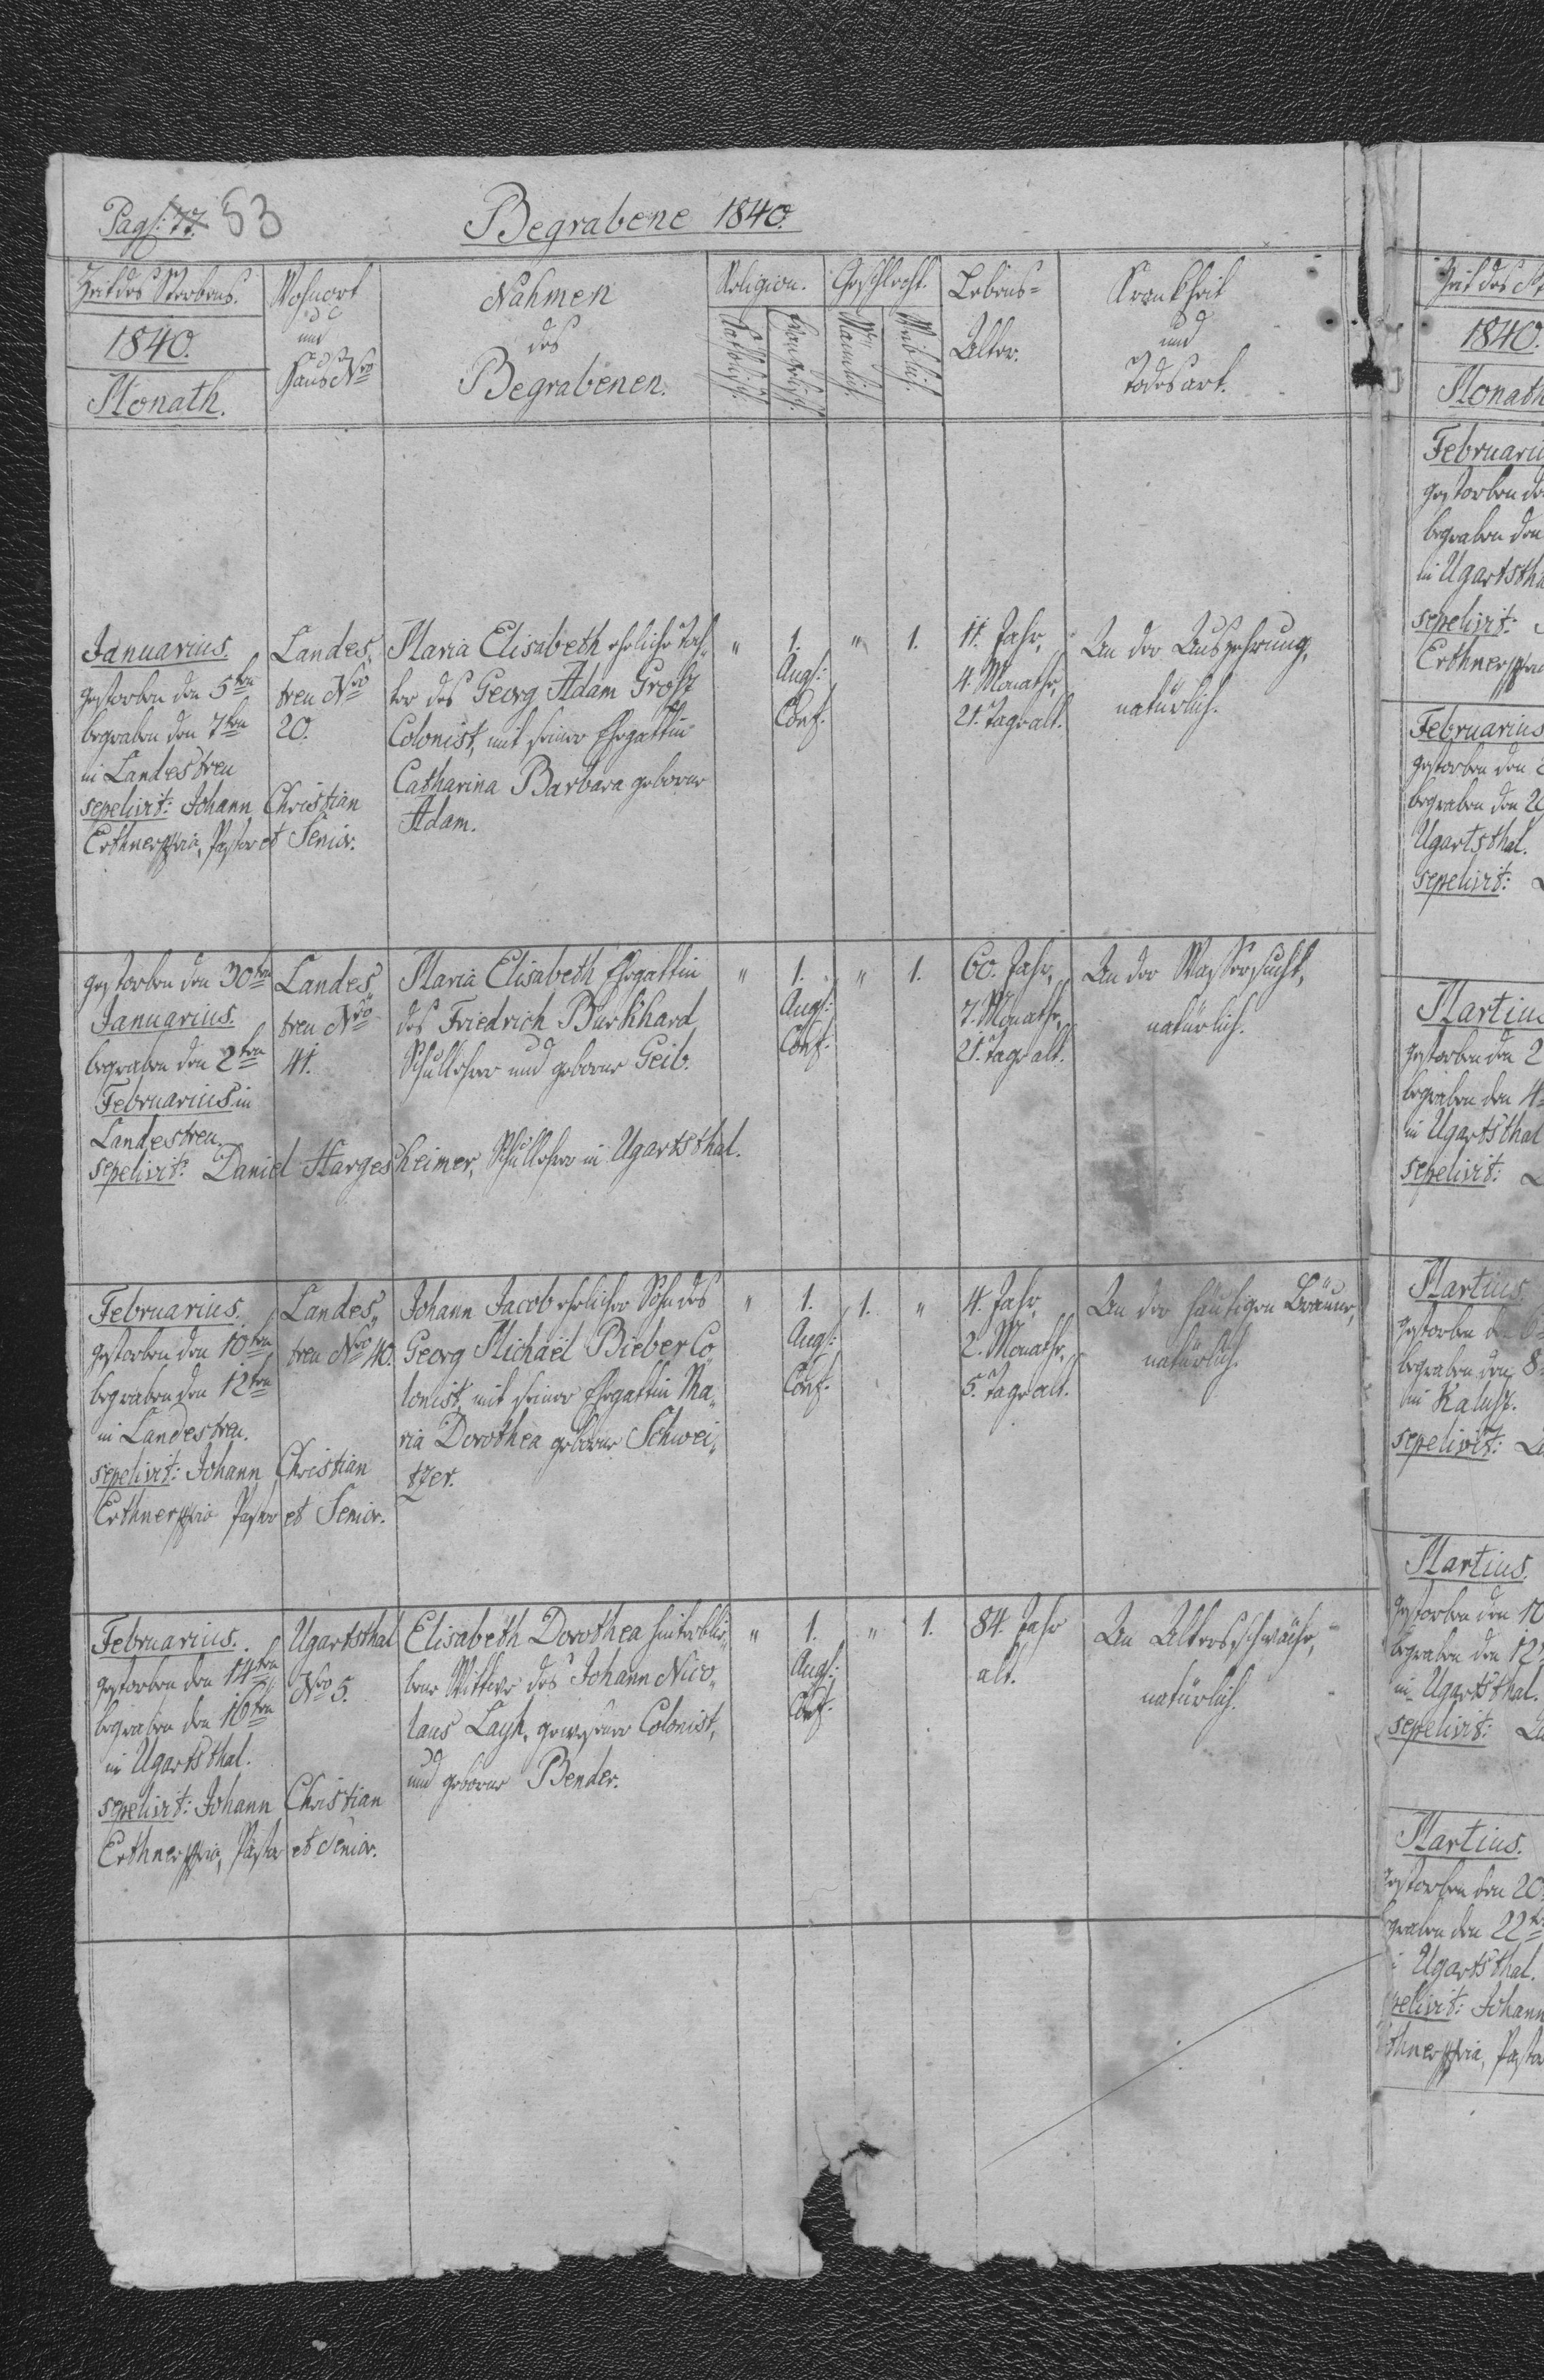 Pag: 77. 53
Begrabene 1840.
Zeit des Sterbens.
1840.
Monath.
Wohnort
und
Haus Nro
Nahmen
des
Begrabenen.
Religion.
Katholisch.
Evangelisch.
Geschlecht.
Männlich.
Weiblich.
Lebens-
Alter.
Krankheit
und
Todesart.
Januarius.
gestorben den 5ten
begraben den 7ten
in Landestreu
sepelivit: Johann Christian
Erthner mpria, Pastor et Senior.
Landes„
treu Nro
20.
Maria Elisabeth eheliche Toch„
ter des Georg Adam Grosz
Colonist, mit seiner Ehegattin
Catharina Barbara geborne
Adam.
" 1. " 1.
Augs:
Conf.
11. Jahr,
4. Monathe,
21. Tage alt.
An der Auszehrung,
natürlich.
gestorben den 30ten
Januarius.
begraben den 2ten
Februarius in
Landestreu.
sepelivit: Daniel Hargesheimer, Schullehrer in Ugartsthal.
Landes„
treu Nro
41.
Maria Elisabeth Ehegattin
des Friedrich Burkhard
Schullehrer und geborne Geib.
" 1. " 1.
Augs:
Conf.
60. Jahr,
7. Monathe,
21. Tage alt.
An der Wassersucht,
natürlich.
Februarius.
gestorben den 10ten
begraben den 12ten
in Landestreu.
sepelivit: Johann Christian
Erthner mpria Pastor et Senior.
Landes„
treu Nro 40.
Johann Jacob ehelicher Sohn des
Georg Michael Bieber Co„
lonist, mit seiner Ehegattin Ma„
ria Dorothea geborne Schwei„
tzer.
" 1. 1. "
Augs:
Conf.
4. Jahr,
2. Monathe,
5. Tage alt.
An der häutigen Bräune,
natürlich.
Februarius.
gestorben den 14ten
begraben den 16ten
in Ugartsthal.
sepelivit: Johann Christian
Erthner mpria, Pastor et Senior.
Ugartsthal
Nro 5.
Elisabeth Dorothea hinterblie„
bene Wittwe des Johann Nico„
laus Layh, gewesener Colonist,
und geborne Bender.
" 1. " 1.
Augs:
Conf.
84. Jahr
alt.
An Altersschwäche,
natürlich.
Zeit des
1840.
Monath
Februarius
gestorben den
begraben den
in Ugartstha
sepelivit:
Erthner mpria
Februarius
gestorben den
begraben den 20
Ugartsthal.
sepelivit:
Martius
gestorben den 2
begraben den 4
in Ugartsthal
sepelivit:
Martius.
gestorben den 6
begraben den 8
in Kalusz.
sepelivit:
Martius.
gestorben den 10
begraben den 12
in Ugartsthal.
sepelivit:
Martius.
gestorben den 20
begraben den 22
Ugartsthal.
pelivit: Johann
thner mpria, Pastor